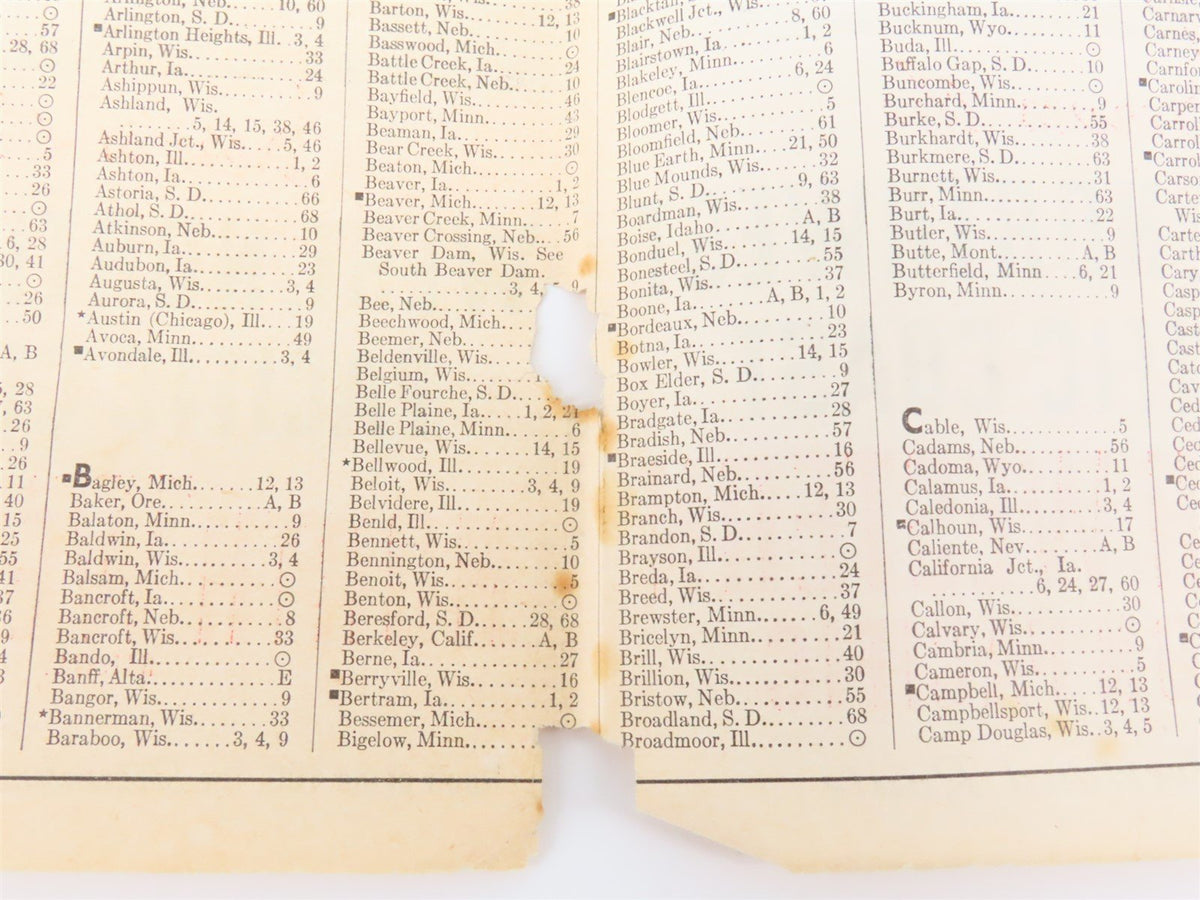 57
28, 68
⊙
22
⊙
⊙
⊙
5
33
26
⊙
63
6, 28
30, 41
⊙
26
50
A, B
5, 28
, 63
26
9
26
11
40
15
25
55
41
37
9
4
Arlington, Neb. 10, 60
Arlington, S. D. 9
■Arlington Heights, Ill. 3, 4
Arpin, Wis. 33
Arthur, Ia. 24
Ashippun, Wis. 9
Ashland, Wis.
5, 14, 15, 38, 46
Ashland Jct., Wis. 5, 46
Ashton, Ill. 1, 2
Ashton, Ia. 6
Astoria, S. D. 66
Athol, S. D. 68
Atkinson, Neb. 10
Auburn, Ia. 29
Audubon, Ia. 23
Augusta, Wis. 3, 4
Aurora, S. D. 9
*Austin (Chicago), Ill. 19
Avoca, Minn. 49
■Avondale, Ill. 3, 4
■Bagley, Mich. 12, 13
Baker, Ore. A, B
Balaton, Minn. 9
Baldwin, Ia. 26
Baldwin, Wis. 3, 4
Balsam, Mich. ⊙
Bancroft, Ia. ⊙
Bancroft, Neb. 8
Bancroft, Wis. 33
Bando, Ill. ⊙
Banff, Alta. E
Bangor, Wis. 9
*Bannerman, Wis. 33
Baraboo, Wis. 3, 4, 9
Barton, Wis. 12, 13
Bassett, Neb. 10
Basswood, Mich. ⊙
Battle Creek, Ia. 24
Battle Creek, Neb. 10
Bayfield, Wis. 46
Bayport, Minn. 43
Beaman, Ia. 29
Bear Creek, Wis. 30
Beaton, Mich. ⊙
Beaver, Ia. 1, 2
■Beaver, Mich. 12, 13
Beaver Creek, Minn. 7
Beaver Crossing, Neb. 56
Beaver Dam, Wis. See
South Beaver Dam.
3, 4, 9
Bee, Neb.
Beechwood, Mich.
Beemer, Neb.
Beldenville, Wis.
Belgium, Wis.
Belle Fourche, S. D.
Belle Plaine, Ia. 1, 2, 21
Belle Plaine, Minn. 6
Bellevue, Wis. 14, 15
*Bellwood, Ill. 19
Beloit, Wis. 3, 4, 9
Belvidere, Ill. 19
Benld, Ill. ⊙
Bennett, Wis. 5
Bennington, Neb. 10
Benoit, Wis. 5
Benton, Wis. ⊙
Beresford, S. D. 28, 68
Berkeley, Calif. A, B
Berne, Ia. 27
■Berryville, Wis. 16
■Bertram, Ia. 1, 2
Bessemer, Mich. ⊙
Bigelow, Minn.
Blackwell Jct., Wis.
Blair, Neb. 8, 60
Blairstown, Ia. 1, 2
Blakeley, Minn. 6
Blencoe, Ia. 6, 24
Blodgett, Ill. ⊙
Bloomer, Wis. 5
Bloomfield, Neb. 61
Blue Earth, Minn. 21, 50
Blue Mounds, Wis. 32
Blunt, S. D. 9, 63
Boardman, Wis. 38
Boise, Idaho A, B
Bonduel, Wis. 14, 15
Bonesteel, S. D. 55
Bonita, Wis. 37
Boone, Ia. A, B, 1, 2
■Bordeaux, Neb. 10
Botna, Ia. 23
Bowler, Wis. 14, 15
Box Elder, S. D. 9
Boyer, Ia. 27
Bradgate, Ia. 28
Bradish, Neb. 57
■Braeside, Ill. 16
Brainard, Neb. 56
Brampton, Mich. 12, 13
Branch, Wis. 30
Brandon, S. D. 7
Brayson, Ill. ⊙
Breda, Ia. 24
Breed, Wis. 37
Brewster, Minn. 6, 49
Bricelyn, Minn. 21
Brill, Wis. 40
Brillion, Wis. 30
Bristow, Neb. 55
Broadland, S. D. 68
Broadmoor, Ill. ⊙
Buckingham, Ia. 21
Bucknum, Wyo. 11
Buda, Ill. ⊙
Buffalo Gap, S. D. 10
Buncombe, Wis. ⊙
Burchard, Minn. 9
Burke, S. D. 55
Burkhardt, Wis. 38
Burkmere, S. D. 63
Burnett, Wis. 31
Burr, Minn. 63
Burt, Ia. 22
Butler, Wis. 9
Butte, Mont. A, B
Butterfield, Minn. 6, 21
Byron, Minn. 9
Cable, Wis. 5
Cadams, Neb. 56
Cadoma, Wyo. 11
Calamus, Ia. 1, 2
Caledonia, Ill. 3, 4
■Calhoun, Wis. 17
Caliente, Nev. A, B
California Jct., Ia.
6, 24, 27, 60
Callon, Wis. 30
Calvary, Wis. ⊙
Cambria, Minn. 9
Cameron, Wis. 5
■Campbell, Mich. 12, 13
Campbellsport, Wis. 12, 13
Camp Douglas, Wis. 3, 4, 5
Carnes,
Carney
Carnfo
■Carolin
Carper
Carrol
Carrol
■Carrol
Carso
Carte
Wis
Carte
Carth
Cary
Casp
Casp
Cast
Cast
Cato
Cav
Ced
Ced
Ced
■Ced
Ced